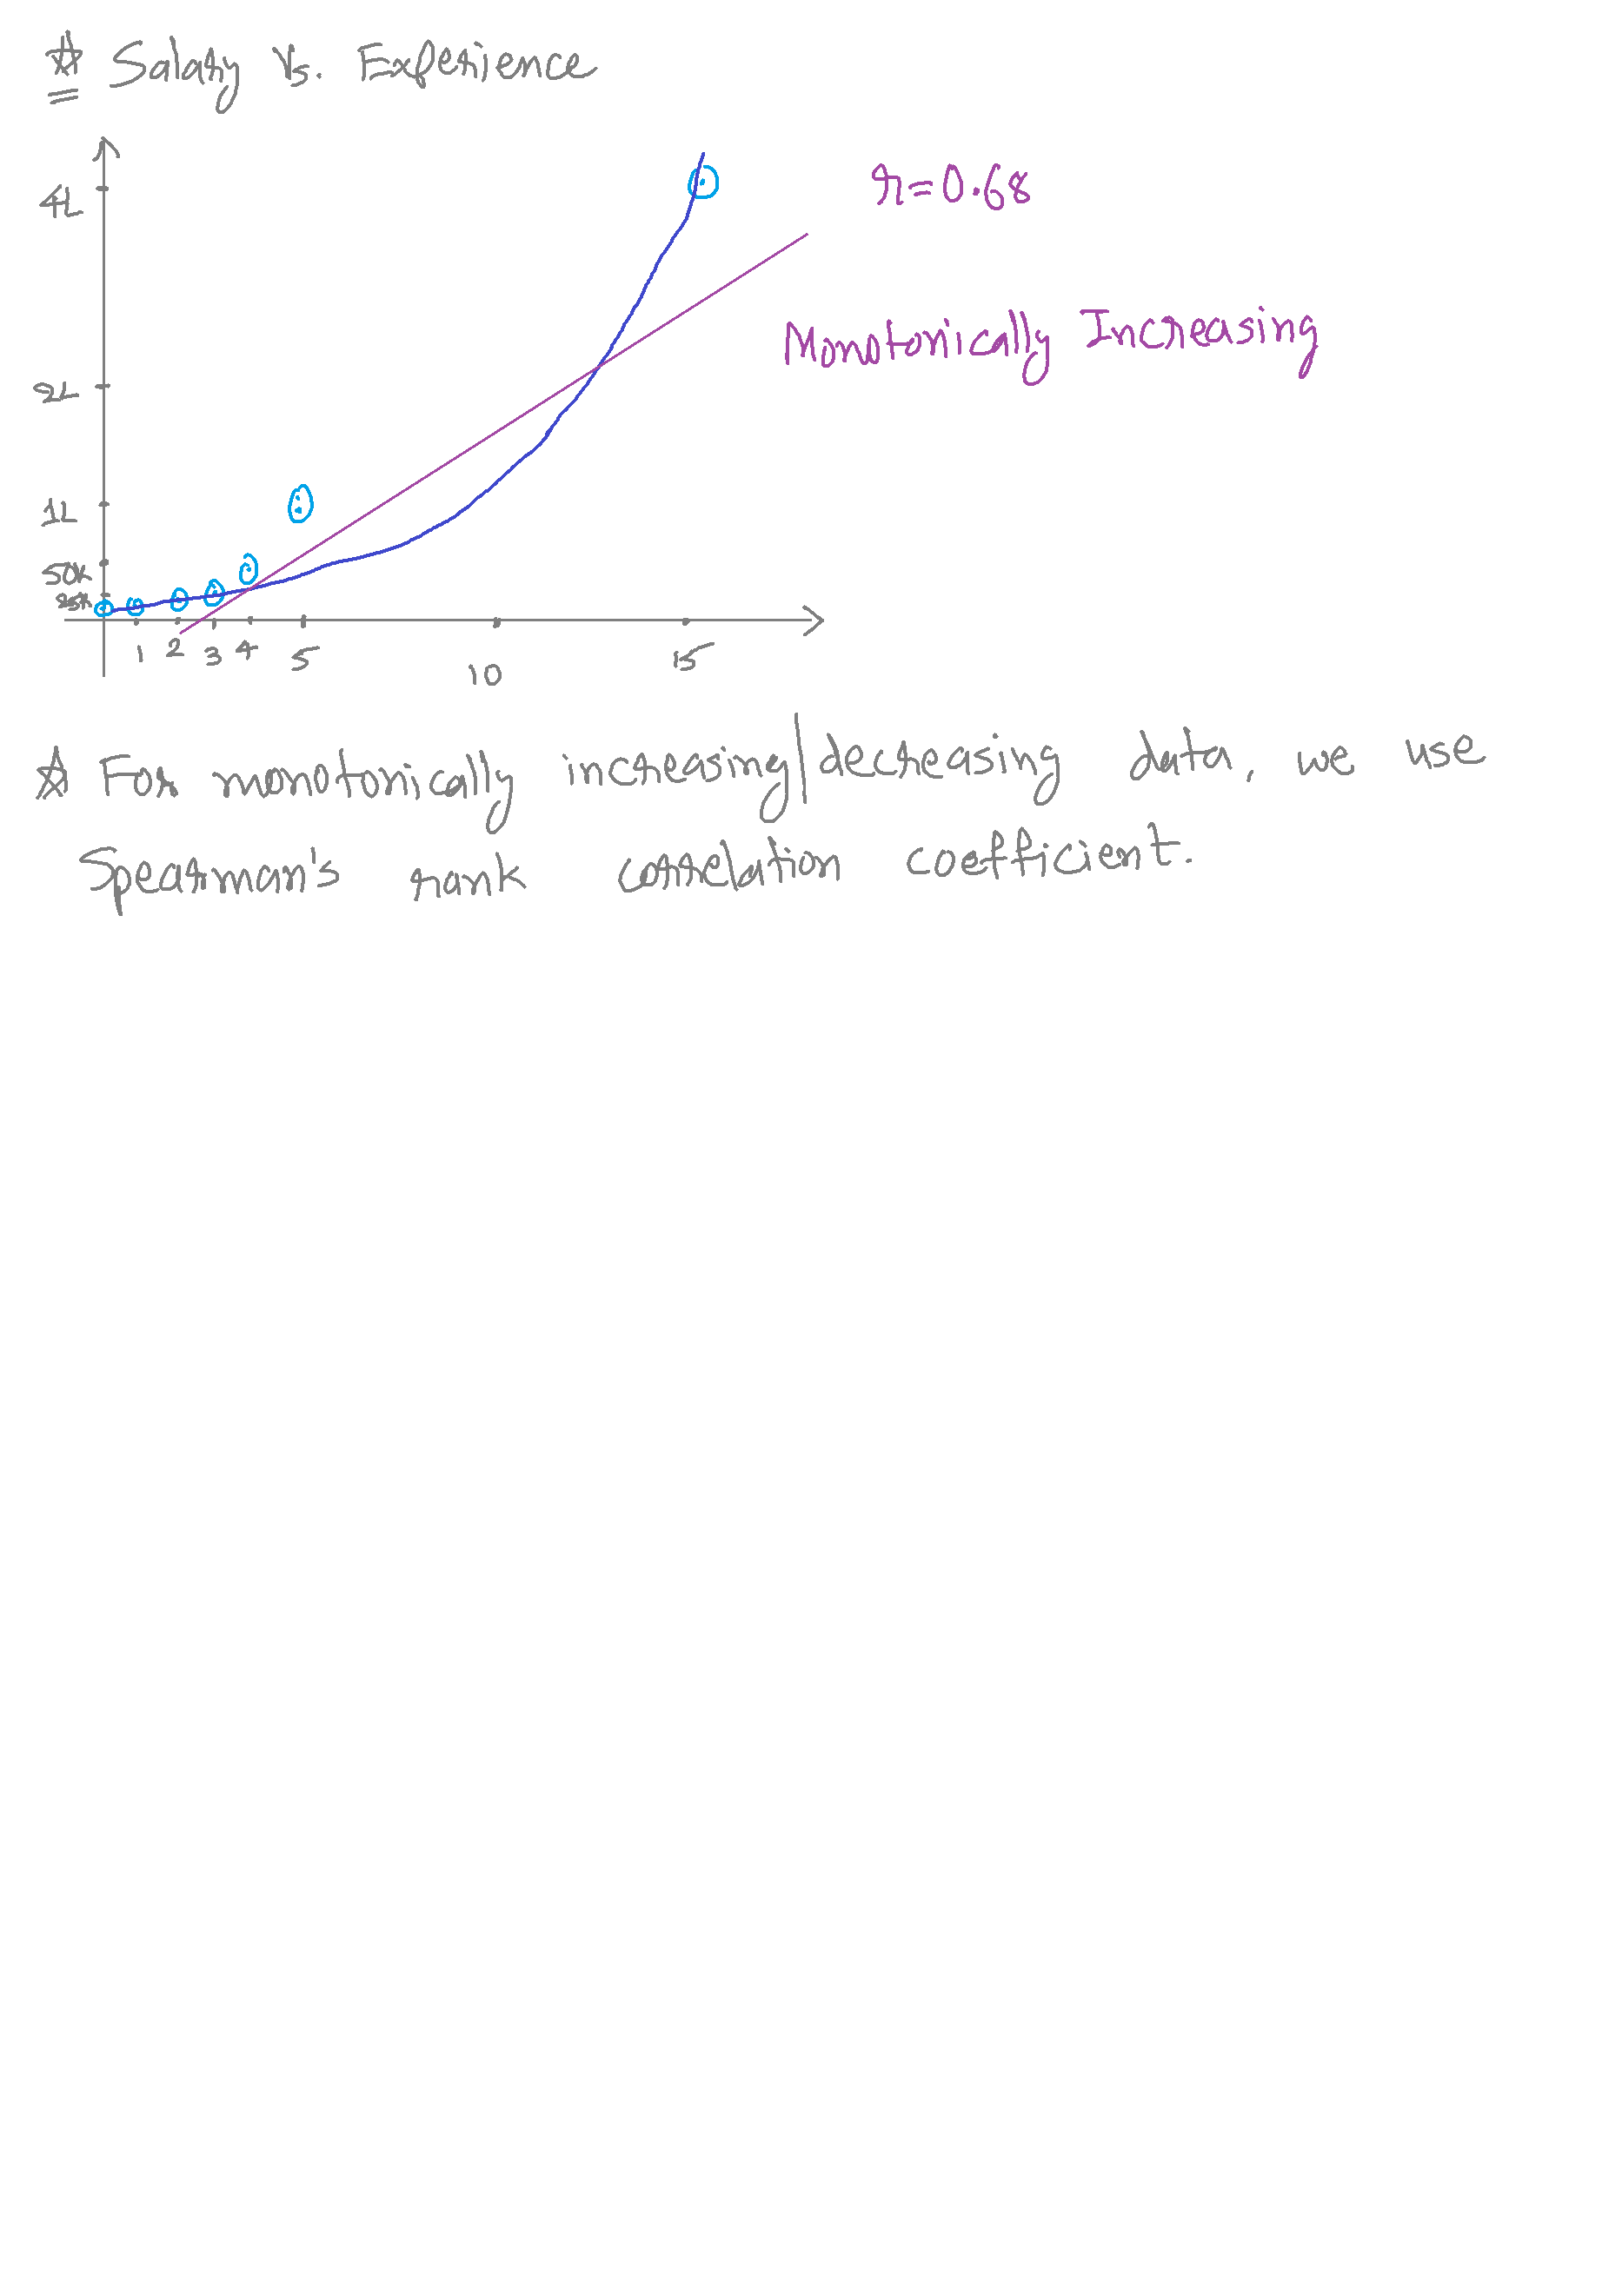 ☆ Salary Vs. Experience
4L
2L
1L
50k
25k
1 2 3 4 5 10 15
r=0.68
Monotonically Increasing
☆ For monotonically increasing/decreasing data, we use
Spearman's rank correlation coefficient.